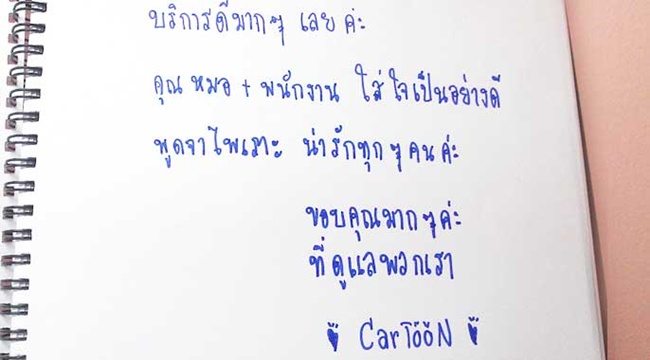 บริการดีมากๆ เลยค่ะ
คุณหมอ + พนักงาน ใส่ใจเป็นอย่างดี
พูดจาไพเราะ น่ารักทุกๆคนค่ะ
ขอบคุณมากๆค่ะ
ที่ดูแลพวกเรา
CarTööN